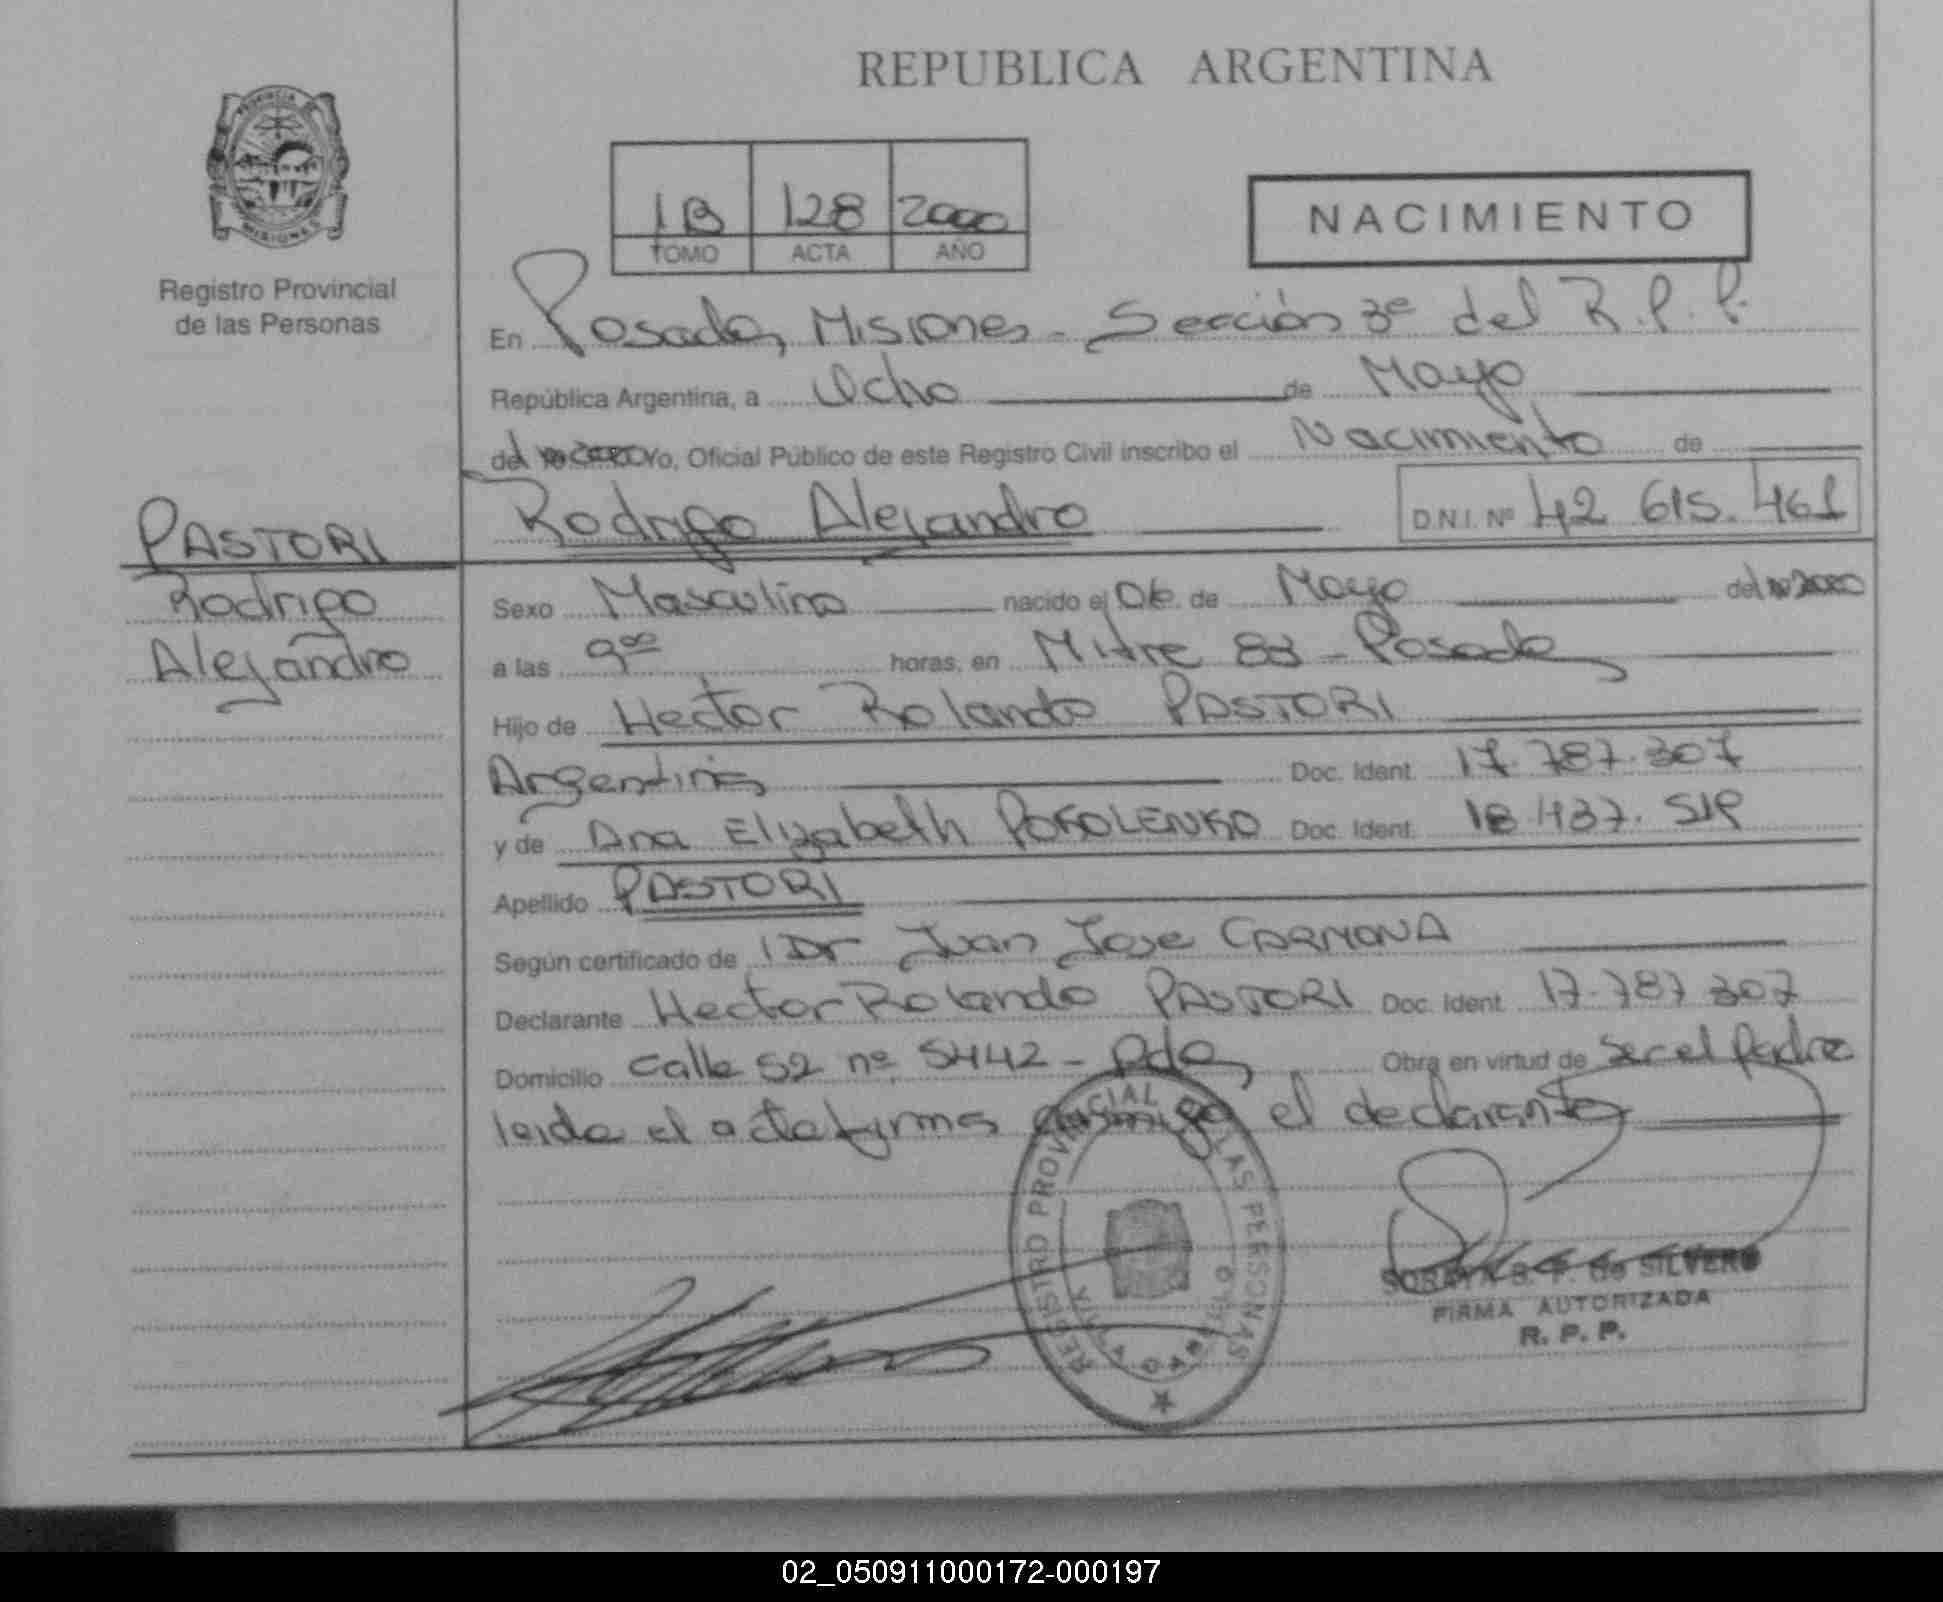 REPUBLICA ARGENTINA
PROVINCIA DE
MISIONES
Registro Provincial
de las Personas
1B 128 2000
TOMO ACTA AÑO
NACIMIENTO
En Posadas, Misiones - Sección 3º del R.P.P.
República Argentina, a Ocho de Mayo
del Yo, Oficial Público de este Registro Civil inscribo el Nacimiento de
Rodrigo Alejandro D.N.I. Nº 42 615.461
PASTORI
Rodrigo
Alejandro
Sexo Masculino nacido el 06 de Mayo del 2000
a las 9 horas, en Mitre 83 - Posadas
Hijo de Hector Rolando PASTORI
Argentina Doc. Ident. 17.787.307
y de Ana Elizabeth Doc. Ident. 18.437.
Apellido PASTORI
Según certificado de Dr Juan Jose CARMONA
Declarante Hector Rolando PASTORI Doc. Ident. 17.787.307
Domicilio Calle 52 nº 5442 - Pdas Obra en virtud de Ser el Padre
leida el acta firma conmigo el declarante
REGISTRO PROVINCIAL DE LAS PERSONAS
SORAYA de SILVERO
FIRMA AUTORIZADA
R. P. P.
02_050911000172-000197